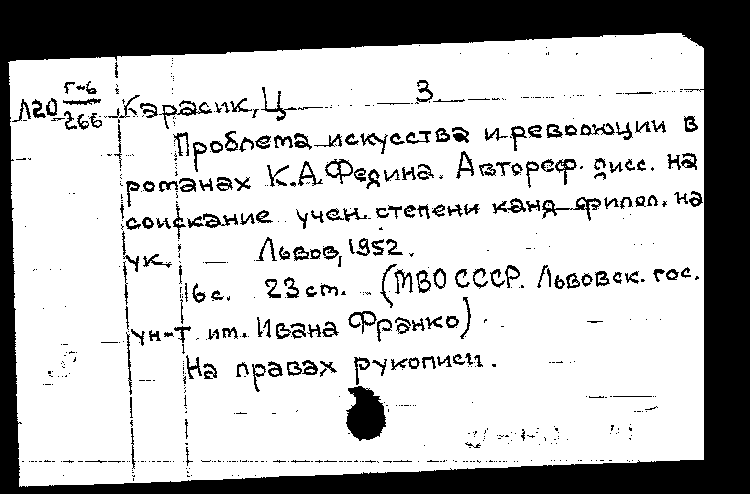 Л20 Г-6/266 Карасик, Ц 3
Проблема искусства и революции в
романах К.А. Федина. Автореф. дисс. на
соискание учен. степени канд филол. на
ук. Львов, 1952.
16с. 23 ст. (МВО СССР. Львовск. гос.
ун-т им. Ивана Франко).
На правах рукописи.